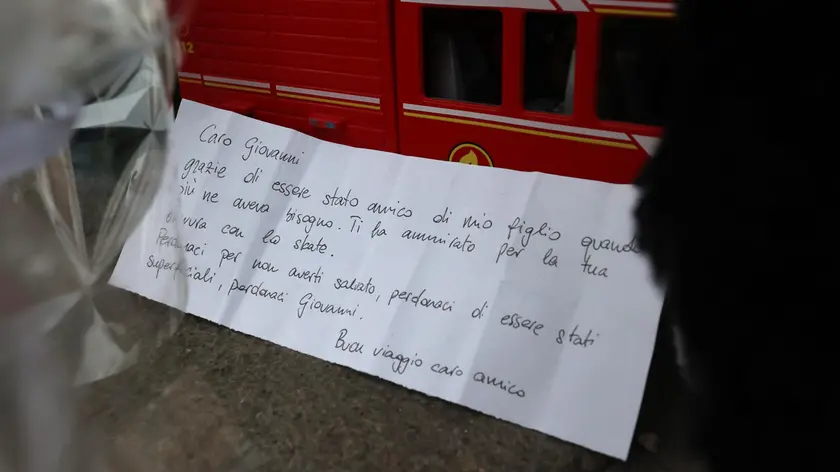 12
Caro Giovanni
grazie di essere stato amico di mio figlio quando
più ne aveva bisogno. Ti ha ammirato per la tua
bravura con lo skate.
Perdonaci per non averti salvato, perdonaci di essere stati
superficiali, perdonaci Giovanni.
Buon viaggio caro amico